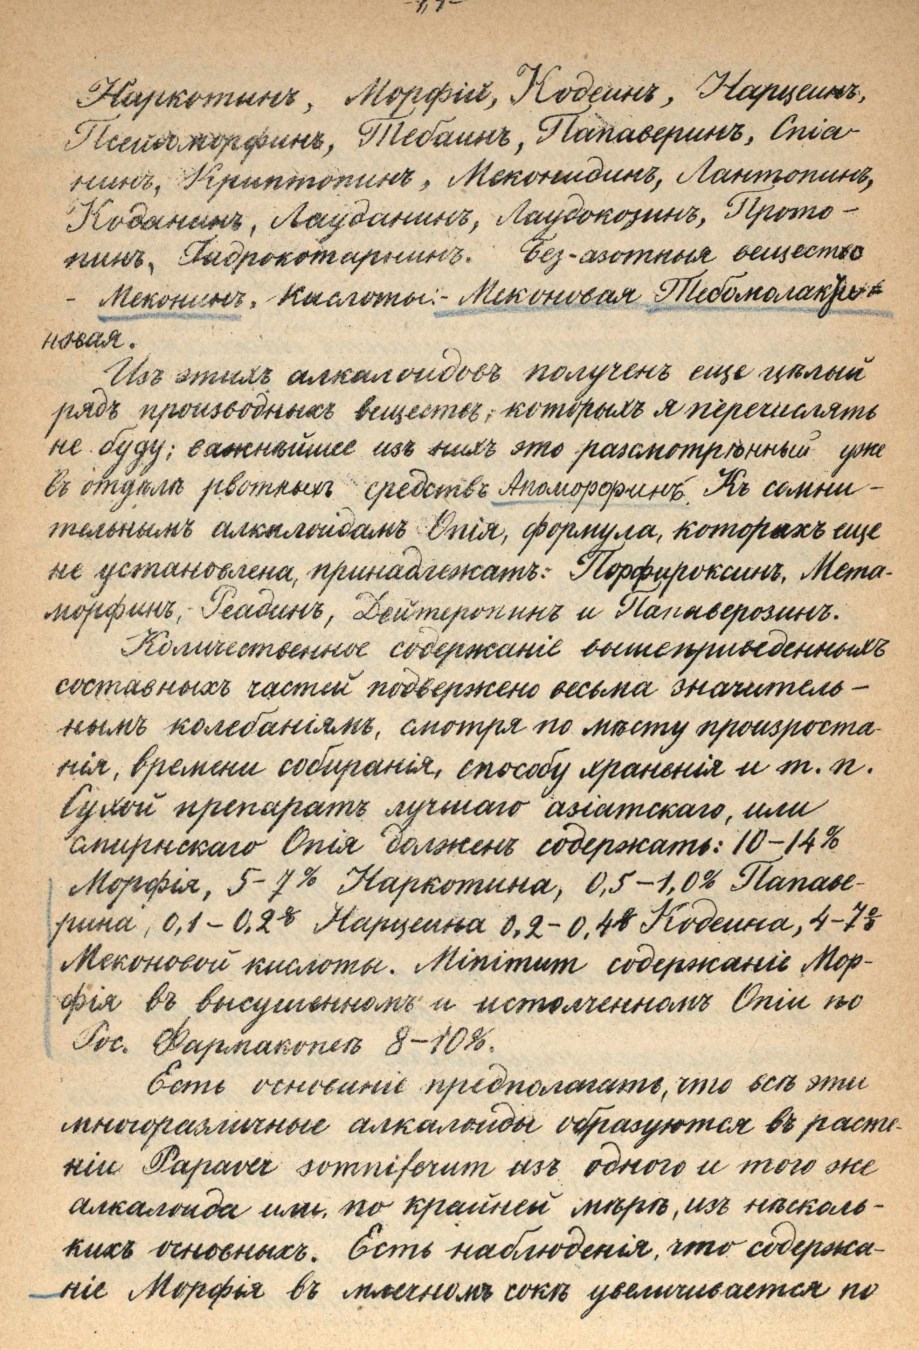 Наркотинъ, Морфій, Кодеинъ, Нарцеинъ,
Псейдоморфинъ, Тебаинъ, Папаверинъ, Опіа-
нинъ, Криптопинъ, Меконидинъ, Лантопинъ,
Коданинъ, Лауданинъ, Лаудокозинъ, Прото-
пинъ, Гидрокотарнинъ. Без-азотныя вещества
- Меконинъ. Кислоты:- Меконовая Тебомолакри=
новая.
Изъ этихъ алкалоидовъ полученъ еще цѣлый
рядъ производныхъ веществъ, которыхъ я перечислять
не буду; важнѣйшее изъ нихъ это разсмотрѣнный уже
въ отдѣлѣ рвотныхъ средствъ Апоморфинъ. Къ сомни-
тельнымъ алкалоидамъ Опія, формула, которыхъ еще
не установлена, принадлежатъ: Порфироксинъ, Мета-
морфинъ, Реадинъ, Дейтеропинъ и Папаверозинъ.
Количественное содержаніе вышеприведенныхъ
составныхъ частей подвержено весьма значитель-
нымъ колебаніямъ, смотря по мѣсту произроста-
нія, времени собиранія, способу храненія и т. п.
Сухой препаратъ лучшаго азіатскаго, или
смирнскаго Опія долженъ содержать: 10-14%
Морфія, 5-7% Наркотина, 0,5-1,0% Папаве-
рина, 0,1-0,2% Нарцеина 0,2-0,4% Кодеина, 4-7%
Меконовой кислоты. Minimum содержаніе Мор-
фія въ высушенномъ и истолченномъ Опіи по
Рос. Фармакопеѣ 8-10%.
Есть основаніе предполагать, что всѣ эти
многоразличные алкалоиды образуются въ расте-
ніи Papaver somniferum изъ одного и того же
алкалоида или, по крайней мѣрѣ, изъ нѣсколь-
кихъ основныхъ. Есть наблюденія, что содержа-
ніе Морфія въ млечномъ сокѣ увеличивается по